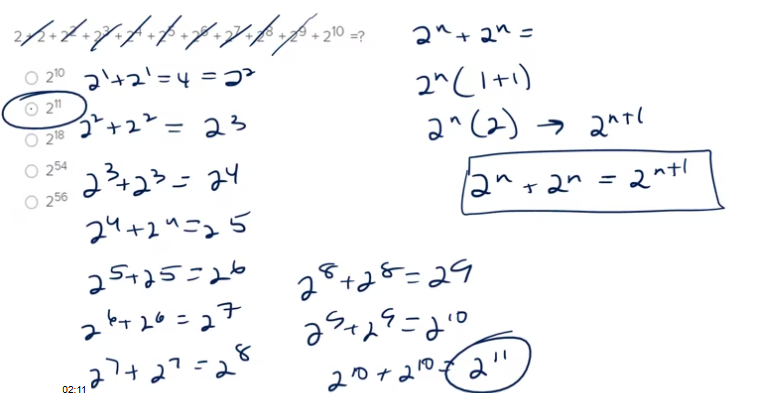 2 + 2 + 2² + 2³ + 2⁴ + 2⁵ + 2⁶ + 2⁷ + 2⁸ + 2⁹ + 2¹⁰ =?
2¹⁰
2¹¹
2¹⁸
2⁵⁴
2⁵⁶
2¹+2¹=4 = 2²
2²+2² = 2³
2³+2³ = 2⁴
2⁴+2⁴=2⁵
2⁵+2⁵=2⁶
2⁶+2⁶ = 2⁷
2⁷+2⁷ = 2⁸
2⁸+2⁸=2⁹
2⁹+2⁹=2¹⁰
2¹⁰+2¹⁰= 2¹¹
2ⁿ + 2ⁿ =
2ⁿ(1+1)
2ⁿ(2) → 2ⁿ⁺¹
2ⁿ + 2ⁿ = 2ⁿ⁺¹
02:11